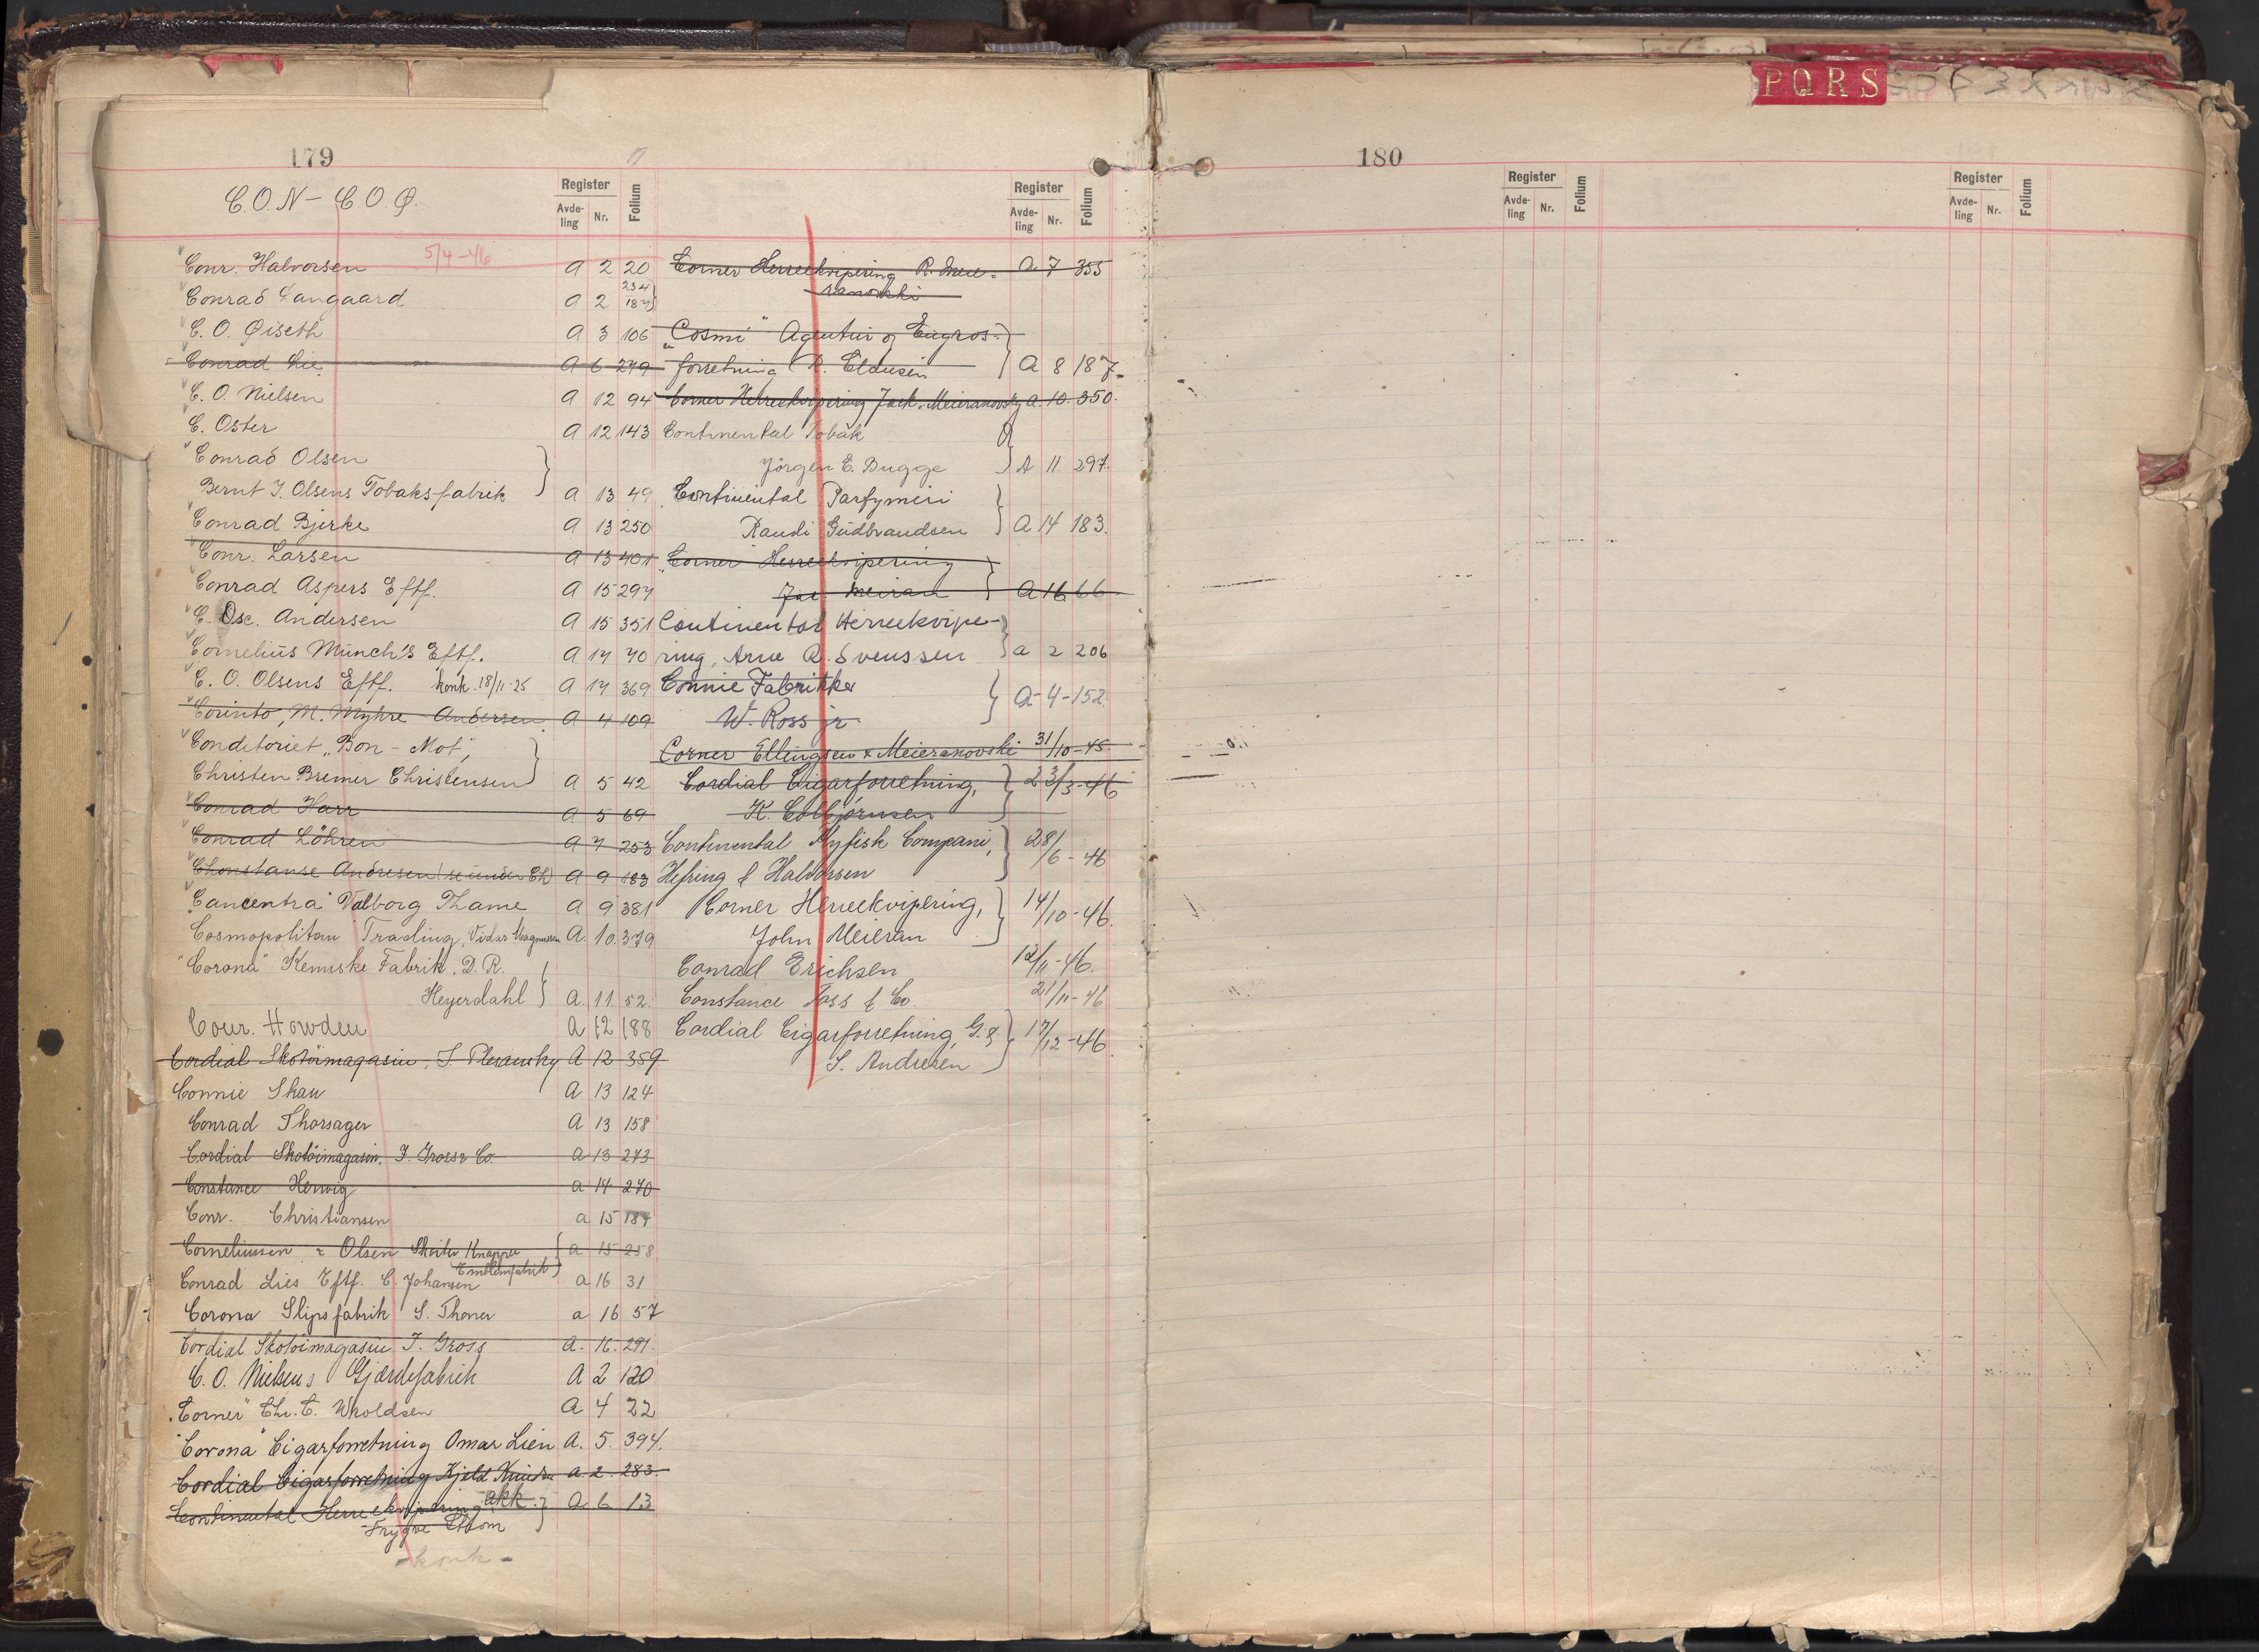 PQRS
179
C.O.N - C.O.Q.
Register
Avde-
ling
Nr.
Folium
Conr. Halvorsen 5/4-46 A 2 20
234
Conrad Langaard A 2 187
C. O. Øiseth A 3 106
Conrad Lie A 6 279
C. O. Nielsen A 12 94
C. Oster A 12 143
Conrad Olsen
Bernt J. Olsens Tobaksfabrik A 13 49
Conrad Bjerke A 13 250
Conr. Larsen A 13 401
Conrad Aspers Eftf. A 15 297
C. Osc. Andersen A 15 351
Cornelius Münch's Eftf. A 17 70
C. O. Olsens Eftf. konk. 18/11-25 A 17 369
Corinto, M. Myhre Andersen A 4 109
Conditoriet „Bon-Mot",
Christen Bremer Christensen A 5 42
Conrad Harr A 5 69
Conrad Löhren A 7 253
Chonstanse Andresen (se under Ch) A 9 183
"Cancentra" Valborg Thame A 9 381
Cosmopolitan Trading, Vidar Magnussen A. 10. 379
"Corona" Kemiske Fabrik, D. R.
Heyerdahl A. 11 52.
Cour. Howden A 12 188
Cordial Skotöimagasin, J. Plesansky A 12 359.
Connie Skau A 13 124
Conrad Thorsager A 13 158
Cordial Skotöimagasin, J. Gross & Co. A 13 273
Constance Herwig a 14 270
Conr. Christiansen a 15 184
Corneliussen & Olsen Skilte Knappe a 15 258
Emblemfabrik
Conrad Lies Eftf. C. Johansen a 16 31
Corona Slipsfabrik S. Thoner a 16 57
Cordial Skotöimagasin J. Gross A. 16. 291.
C. O. Nielsens Gjærdefabrik A 2 120
„Corner" Chr. C. Wholdsen A 4 22
"Corona" Cigarforretning Omar Lien A. 5. 394.
Cordial Cigarforretning Kjeld A. 2. 283.
Continental Herreekvipering akk. A 6 13
Trygve Strøm
- konk -
Register
Avde-
ling
Nr.
Folium
Corner Herreekvipering R. Meie- A 7 355
ranovski
„Cosmi" Agentur og Engros-
forretning R. Eldusen A 8 187.
Corner Herreekvipering Jack. Meieranovsky A. 10. 350.
Continental Tobak
Jörgen E. Bugge A 11 297.
Continental Parfymeri
Randi Gudbrandsen A 14 183.
Corner Herreekvipering
Jac Meiran A 16 66
Continental Herreekvipe-
ring, Arne R. Svenssen a 2 206
Connie Fabrikker
W. Ross jr A-4-152
Corner Ellingsen & Meieranovski 31/10-45.
Cordial Cigarforretning, 23/3-46
K. Colbjørnsen
Continental Kyfisk Compani, 28/6-46
Hefring & Halvorsen
Corner Herreekvipering, 14/10-46.
John Meieran
Conrad Erichsen 12/11-46.
Constance Foss & Co. 21/11-46
Cordial Cigarforretning, G. & 17/12-46.
S. Andresen
180
Register
Avde-
ling
Nr.
Folium
Register
Avde-
ling
Nr.
Folium